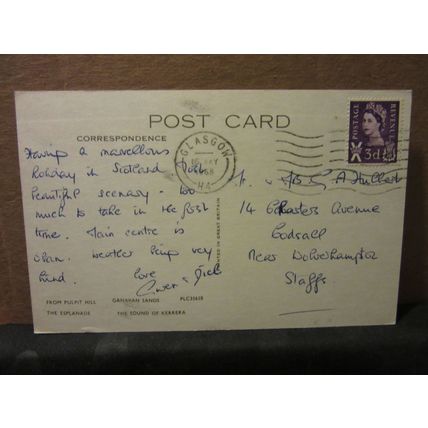 POST CARD
CORRESPONDENCE
Having a marvellous
holiday in Scotland. Such
beautiful scenery - too
much to take in the first
time. Main centre is
Oban. Weather being very
kind. love
Gwen & Dick
GLASGOW
MAY
1968
H4
POSTAGE
REVENUE
3d
14 Avenue
Codsall
Near Wolverhampton
Staffs
PRINTED IN GREAT BRITAIN
FROM PULPIT HILL GANAVAN SANDS
THE ESPLANADE THE SOUND OF KERRERA